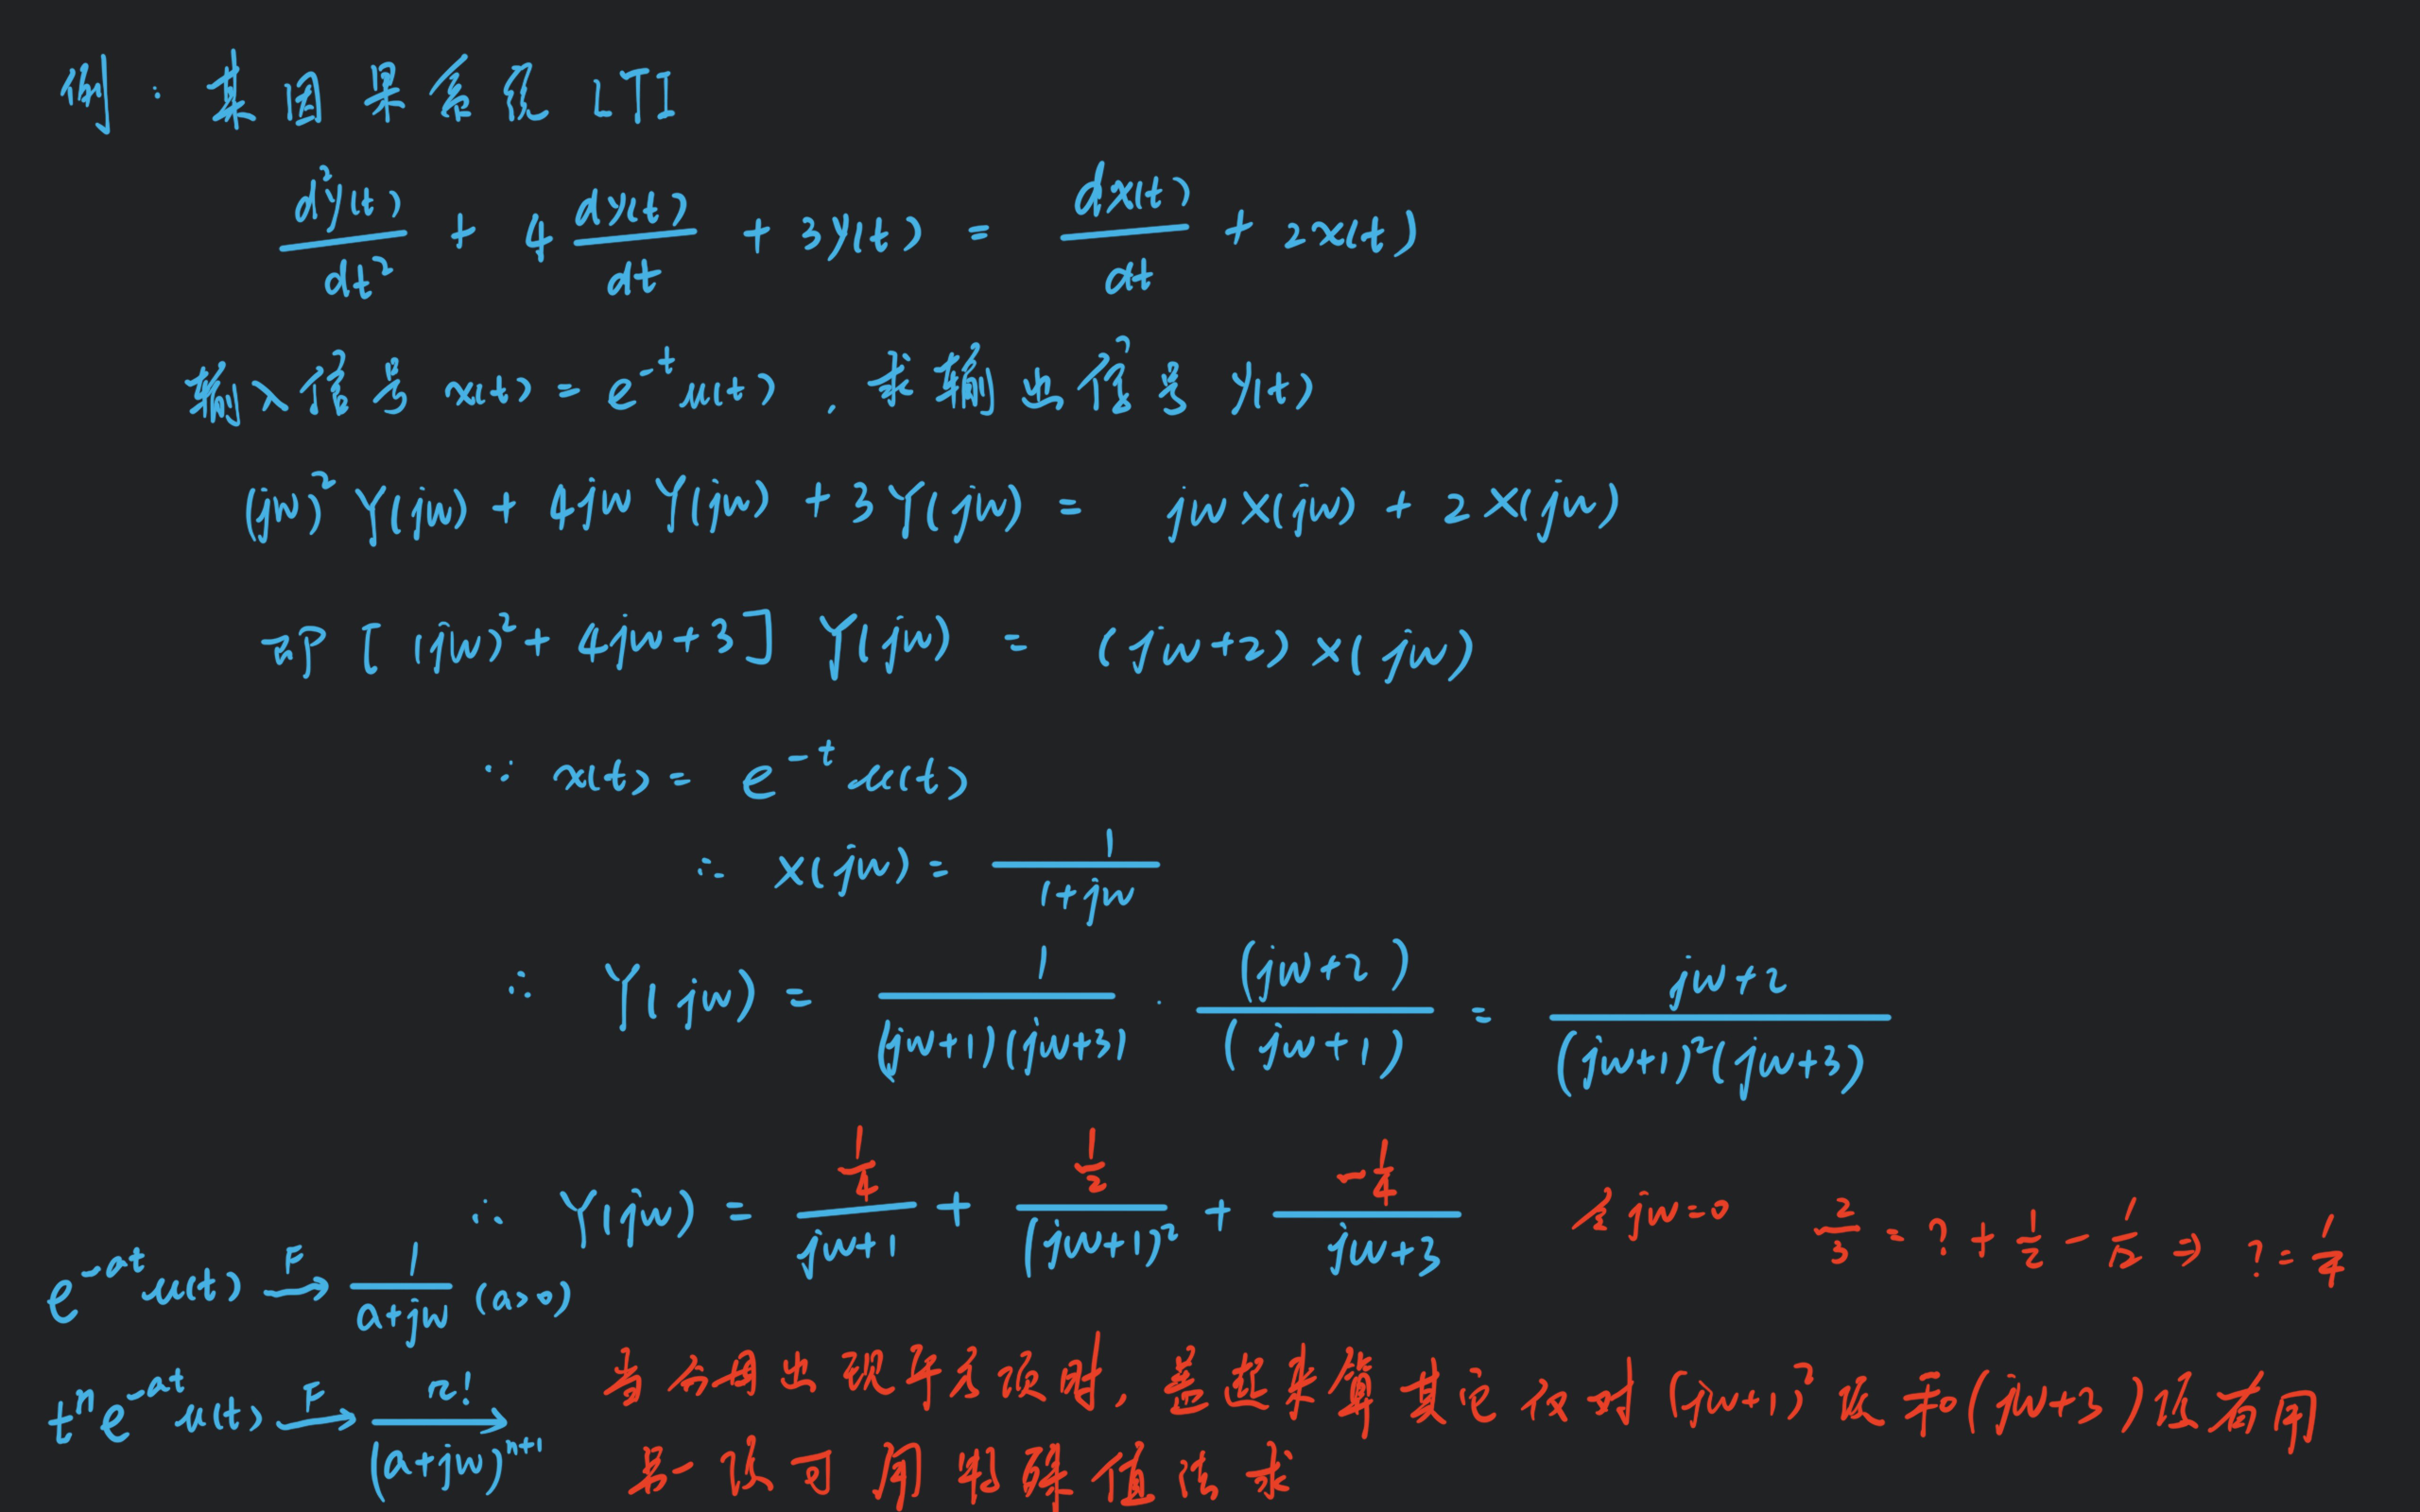 例：某因果系统 LTI
d²y(t)/dt² + 4 dy(t)/dt + 3y(t) = dx(t)/dt + 2x(t)
输入信号 x(t) = e^{-t} u(t) , 求输出信号 y(t)
(jw)² Y(jw) + 4jw Y(jw) + 3Y(jw) = jw X(jw) + 2X(jw)
即 [ (jw)² + 4jw + 3 ] Y(jw) = (jw+2) X(jw)
∵ x(t) = e^{-t} u(t)
∴ X(jw) = 1/(1+jw)
∴ Y(jw) = 1/((jw+1)(jw+3)) · (jw+2)/(jw+1) = (jw+2)/((jw+1)²(jw+3))
∴ Y(jw) = (1/4)/(jw+1) + (1/2)/(jw+1)² + (-1/4)/(jw+3) 令 jw=0 2/3 = ? + 1/2 - 1/12 ⇒ ? = 1/4
e^{-at} u(t) →F 1/(a+jw) (a>0)
t^n e^{-at} u(t) →F n!/(a+jw)^{n+1}
当分母出现平方项时, 盖起来算其它仅对 (jw+1)² 项和 (jw+3) 项有用
另一项可用特殊值法求